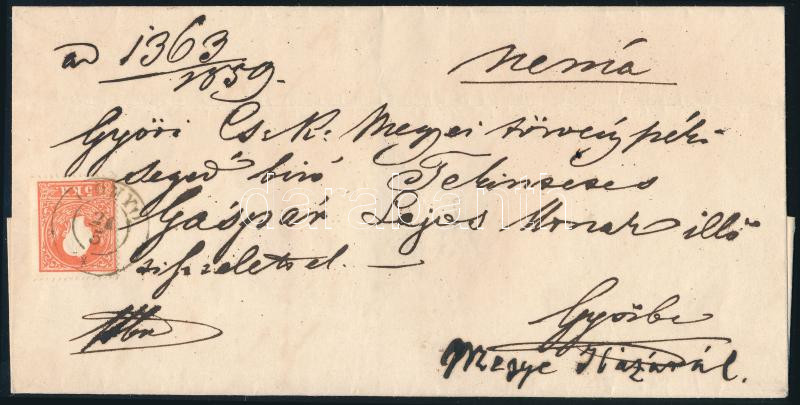 ad 1363/1859.
nemá
Győri Cs. K. Megyei törvényszéki
segéd biró Tekintetes
Gáspár Lajos Urnak illő
tisztelettel. —
Győrbe
Megye Házánál.
5 KR
darabanth